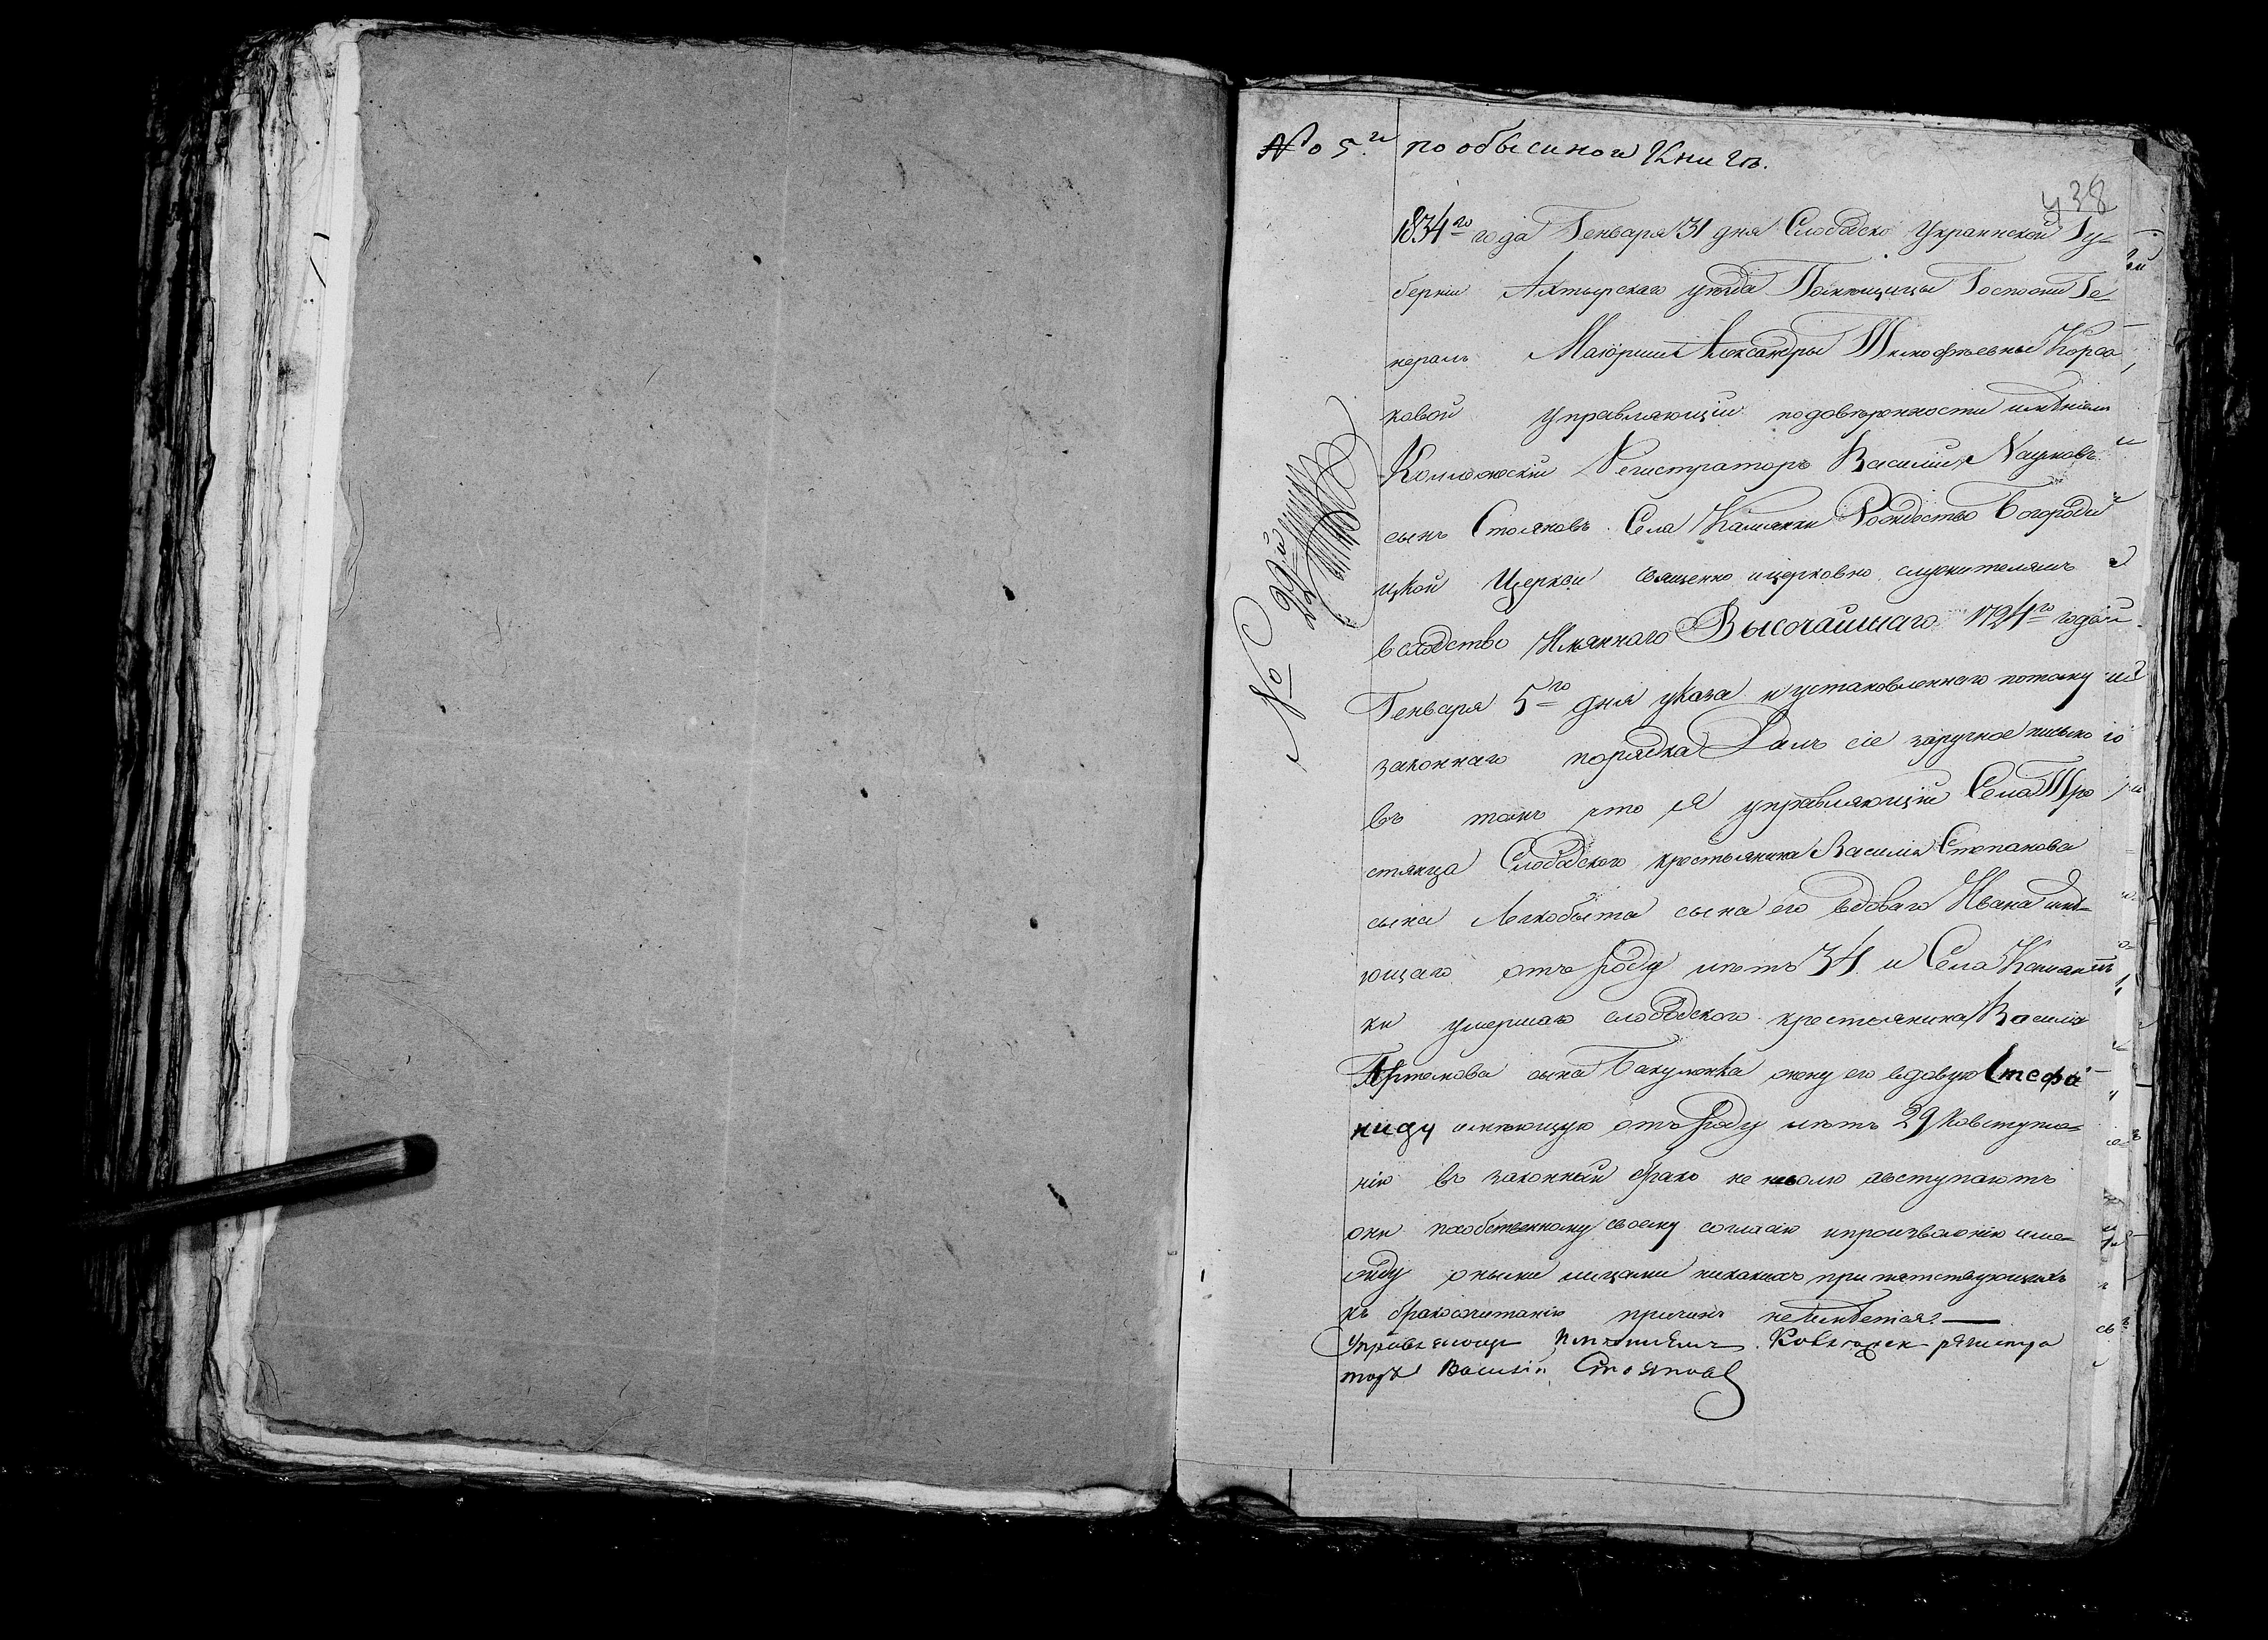 № 5й по обысиной Книгѣ.
438
1834го года Генваря 31 дня Слободско Украинской Гу-
берніи Ахтырскаго уезда Помѣщицы Госпожи Ге-
нералъ Маіорши Александры Тимофѣевны Корса
ковой Управляющій подовѣренности имѣніемъ
Коллежскій Регистраторъ Василий Наумовъ
сынъ Стояновъ Села Каменки Рождество Богороди
цкой Церкви священно ицерковно служителямъ
вследство Имяннаго Высочайшаго 1724го года
Генваря 5го дня указа и установленнаго потому
законнаго порядка Далъ сіе заручное письмо
въ томъ что я управляющій Села Тро
стянца Слободского крестьянина Василия Степанова
сына Легкобыта сына его вдоваго Ивана имѣ-
ющаго отъ роду летъ 34 и Села Каменѣ
ки умершаго слободского крестьянина Василя
Артемова сына Бакуменка жену его вдовую Стефа
ниду имѣющую отъ роду летъ 29 Ковступле-
нію въ законный бракъ не неволю авступаютъ
они пособственному своему согласію ипроизволенію име-
жду оными лицами никакихъ припятствующихъ
къ бракосочетанію причинъ неимѣется.
Управляющи Имѣнѣемъ Колѣжжек регистра
торъ Василій Стояновъ
№ 22й